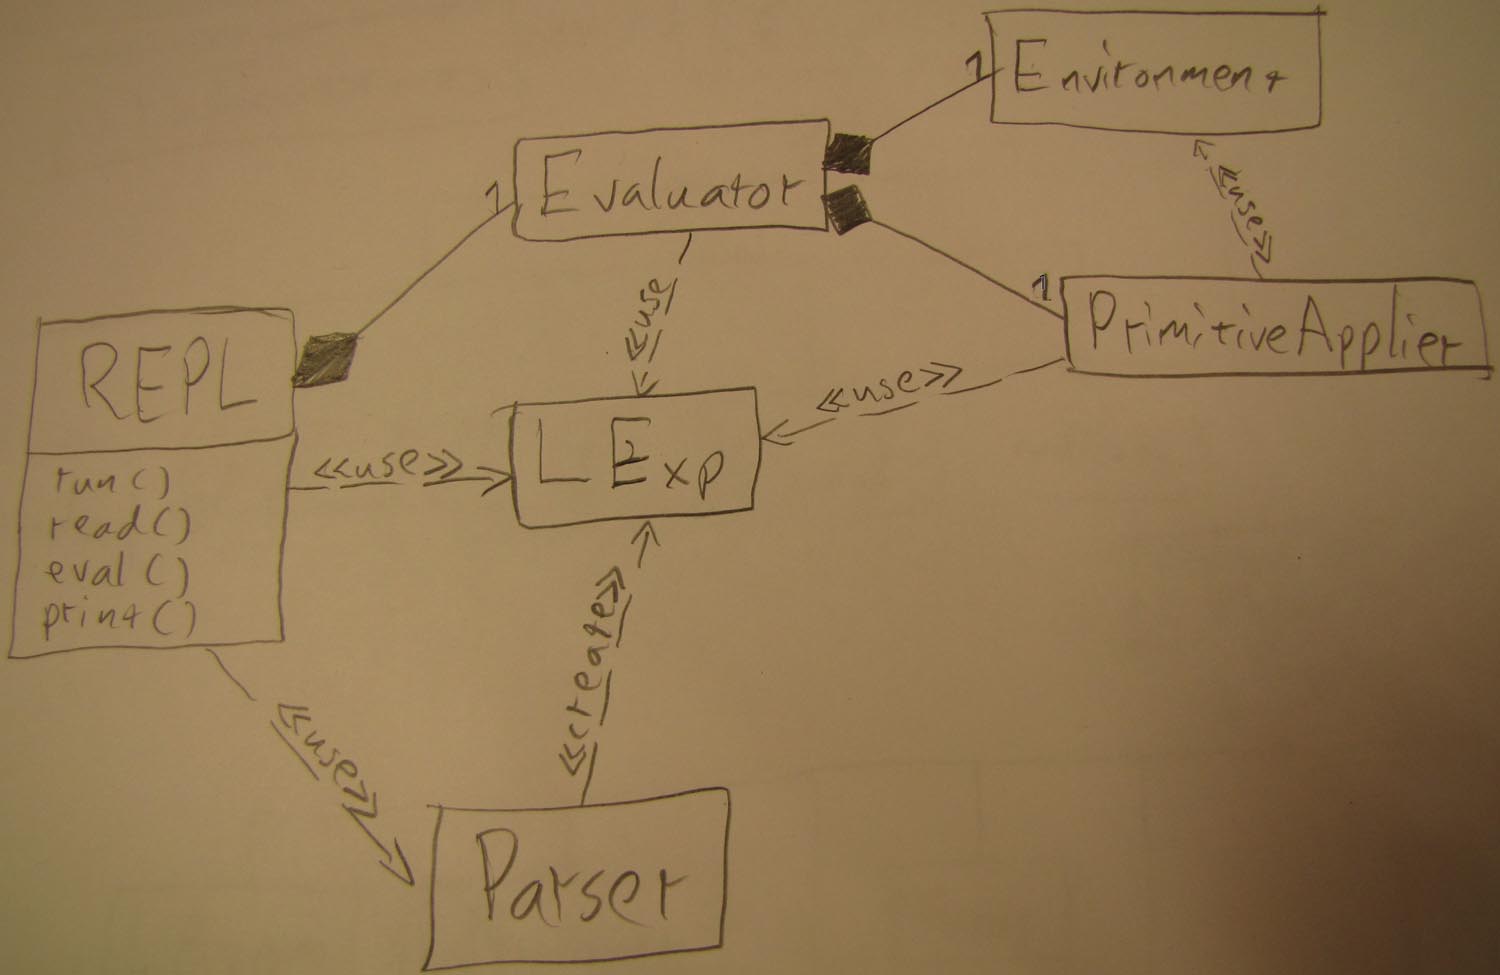 1 Environment
1 Evaluator
«use»
1 PrimitiveApplier
«use»
«use»
REPL
run()
read()
eval()
print()
«use»
LExp
«create»
«use»
Parser